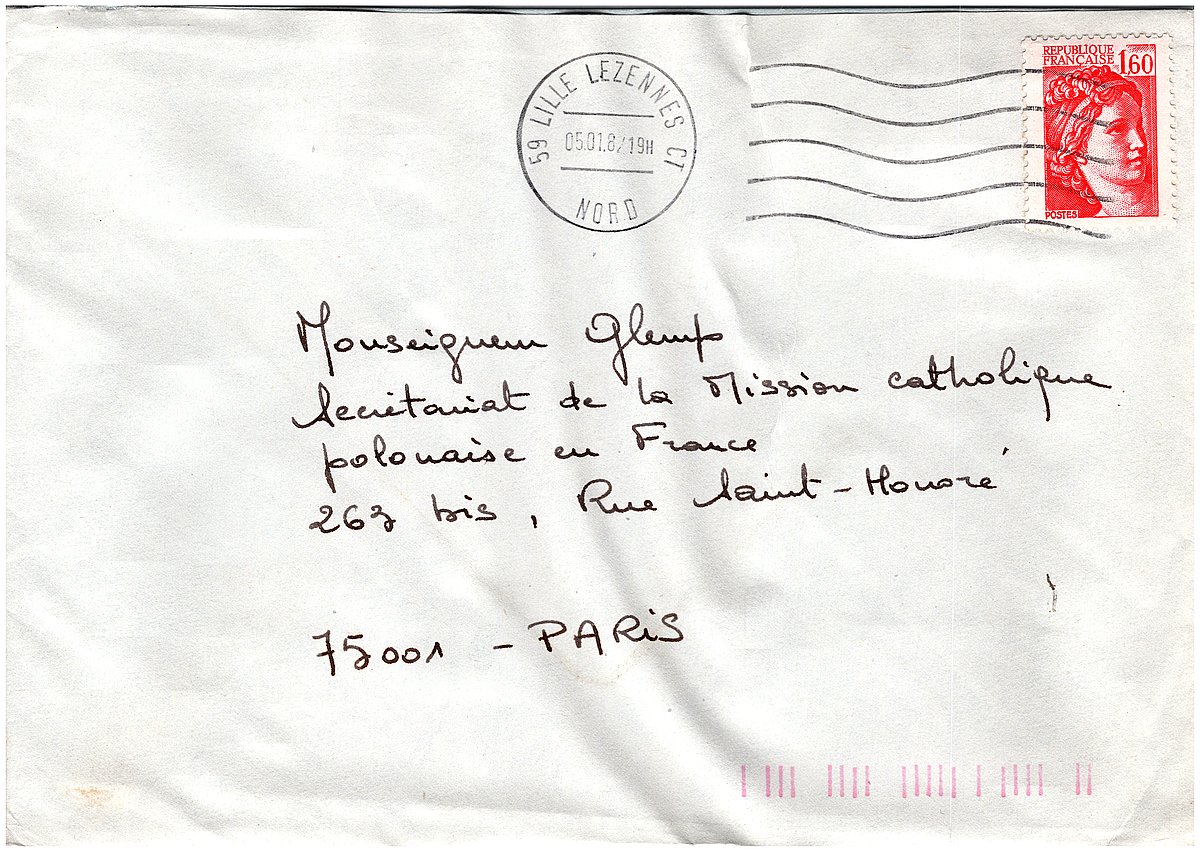 59 LILLE LEZENNES CT
05.01.8/19H
NORD
REPUBLIQUE
FRANÇAISE 1,60
POSTES
Monseigneur Glemp
Secrétariat de la Mission catholique
polonaise en France
263 bis, Rue Saint-Honoré
75001 - PARIS